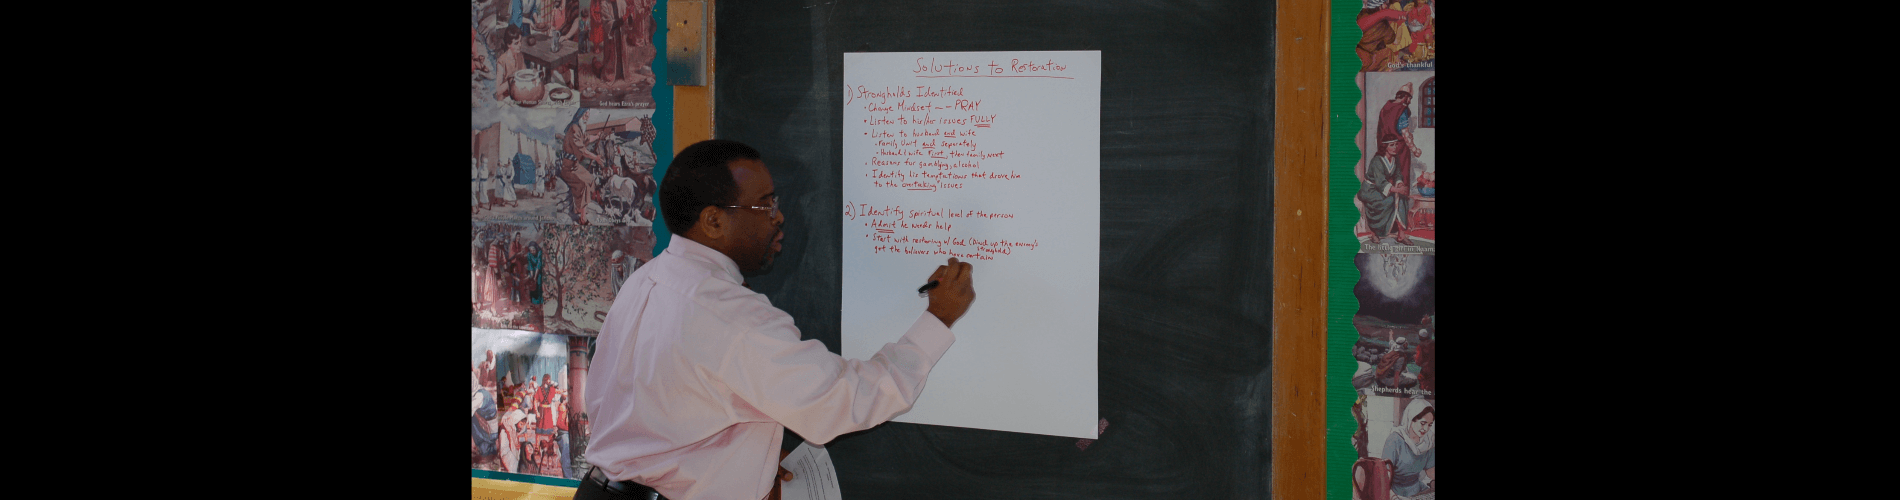 God hears Ezra's prayer
Solutions to Restoration
1) Strongholds Identified
• Change Mindset — PRAY
• Listen to his/her issues FULLY
• Listen to husband and wife
- Family Unit and separately
- Husband & wife first, then family next
• Reasons for gambling, alcohol
• Identify his temptations that drove him
to the "overtaking" issues
2) Identify spiritual level of the person
• Admit he needs help
• Start with restoring w/ God (bind up the enemy's
stronghold)
get the believers who have certain
God's thankful
The Girl
Shepherds hear the